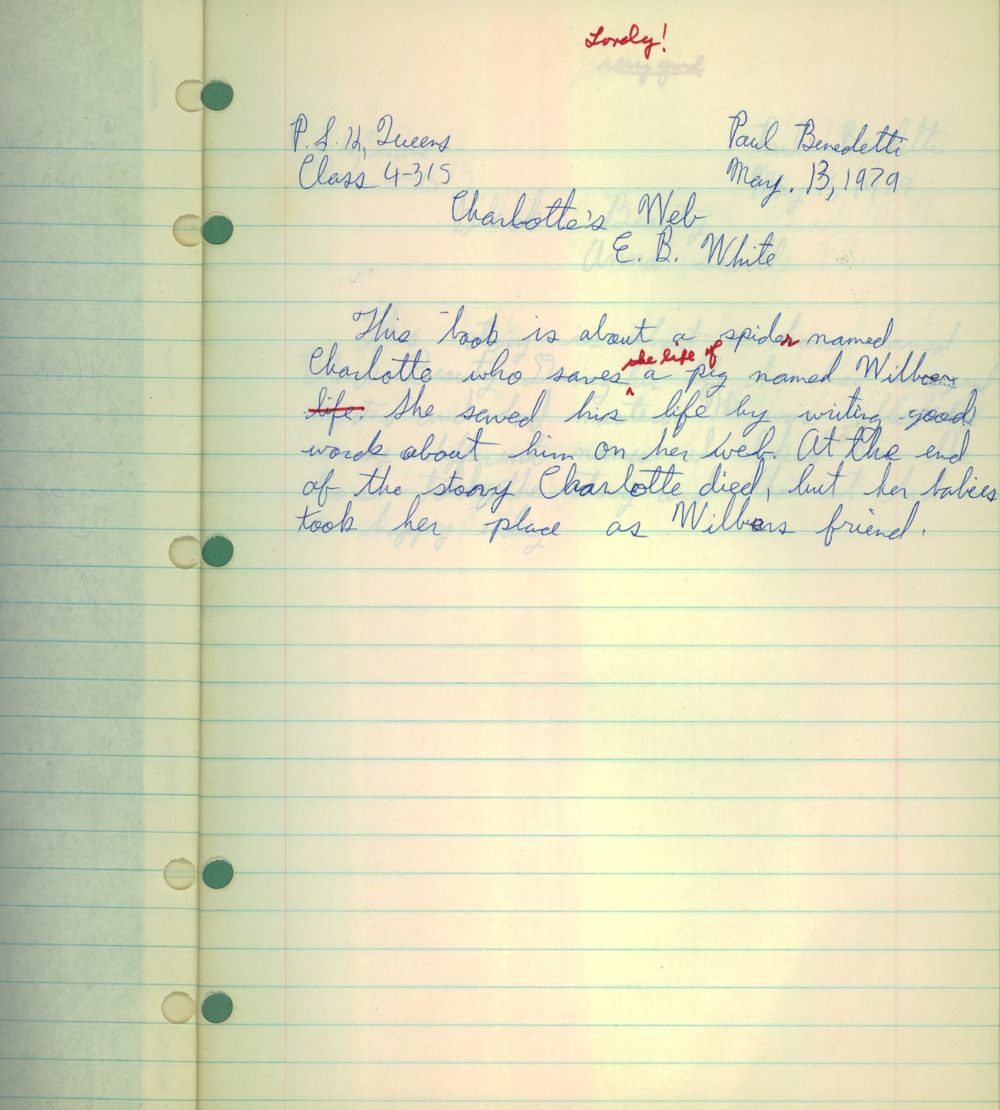 Lovely!
P.S. 12, Queens Paul Benedetti
Class 4-315 May. 13, 1979
Charlotte's Web
E. B. White
This book is about a spider named
the life of
Charlotte who saves a pig named Wilber
life. She saved his life by writing good
words about him on her web. At the end
of the stoory Charlotte died, but her babies
took her place as Wilbers friend.